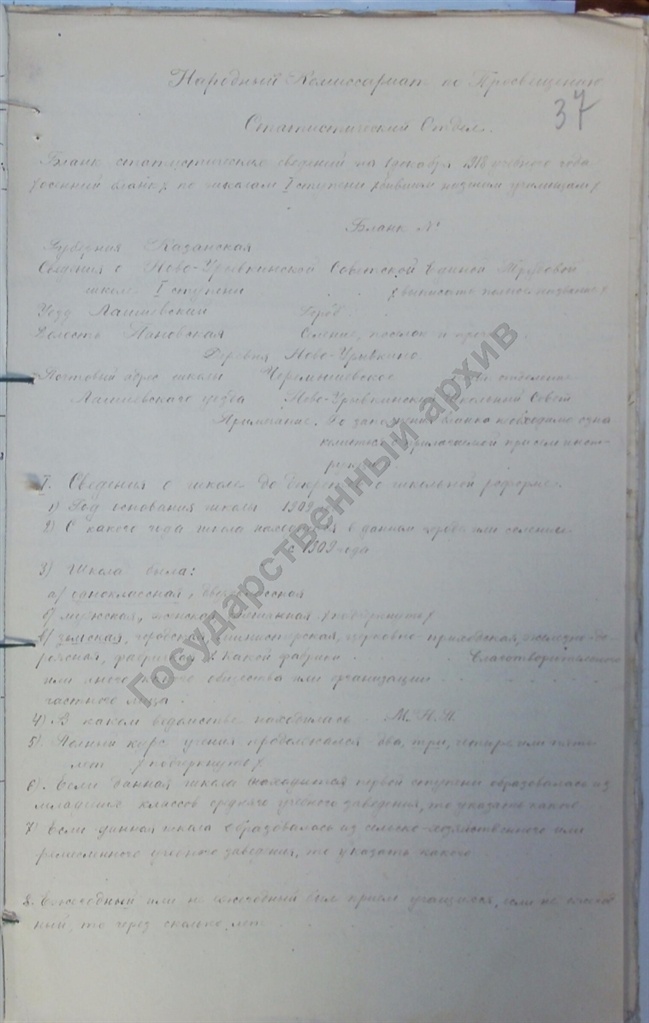 Народный Комиссариат по Просвещению
37
Статистический Отдел.
Бланк статистических сведений на 1 декабря 918 учебного года
/осенний бланк/ по школам I ступени /бывшим низшим училищам/
Бланк №
Губерния Казанская
Сведения о Ново-Урывкинской Советской Единой Трудовой
школе I ступени /выписать полное название/
Уезд Лаишевский Город
Волость Селение, поселок и проч.
Деревня Ново-Урывкино
Почтовый адрес школы Черемышевское отделение
Лаишевского уезда Ново-Урывкинский Школьный Совет
Примечание. До заполнения бланка необходимо озна-
комиться с прилагаемой при нем инст-
рукц
I. Сведения о школе до декрета о школьной реформе.
1) Год основания школы 1909
2) С какого года школа находится в данном городе или селении
с 1909 года
3) Школа была:
а) одноклассная, двухклассная
б) мужская, женская, смешанная /подчеркнуть/
в) земская, городская, министерская, церковно-приходская, железно-до-
рожная, фабричная какой фабрики . . . благотворительного
или иного какого общества или организации . . . .
частного лица .
4) В каком ведомстве находилась М. Н. П.
5) Полный курс учения продолжался два, три, четыре или пять
лет /подчеркнуть/
6). Если данная школа первой ступени образовалась из
младших классов среднего учебного заведения, то указать какого
7) Если данная школа образовалась из сельско-хозяйственного или
ремесленного учебного заведения, то указать какого
8. Ежегодный или не ежегодный был прием учащихся, если не ежегод-
ный, то через сколько лет . . .
Государственный архив